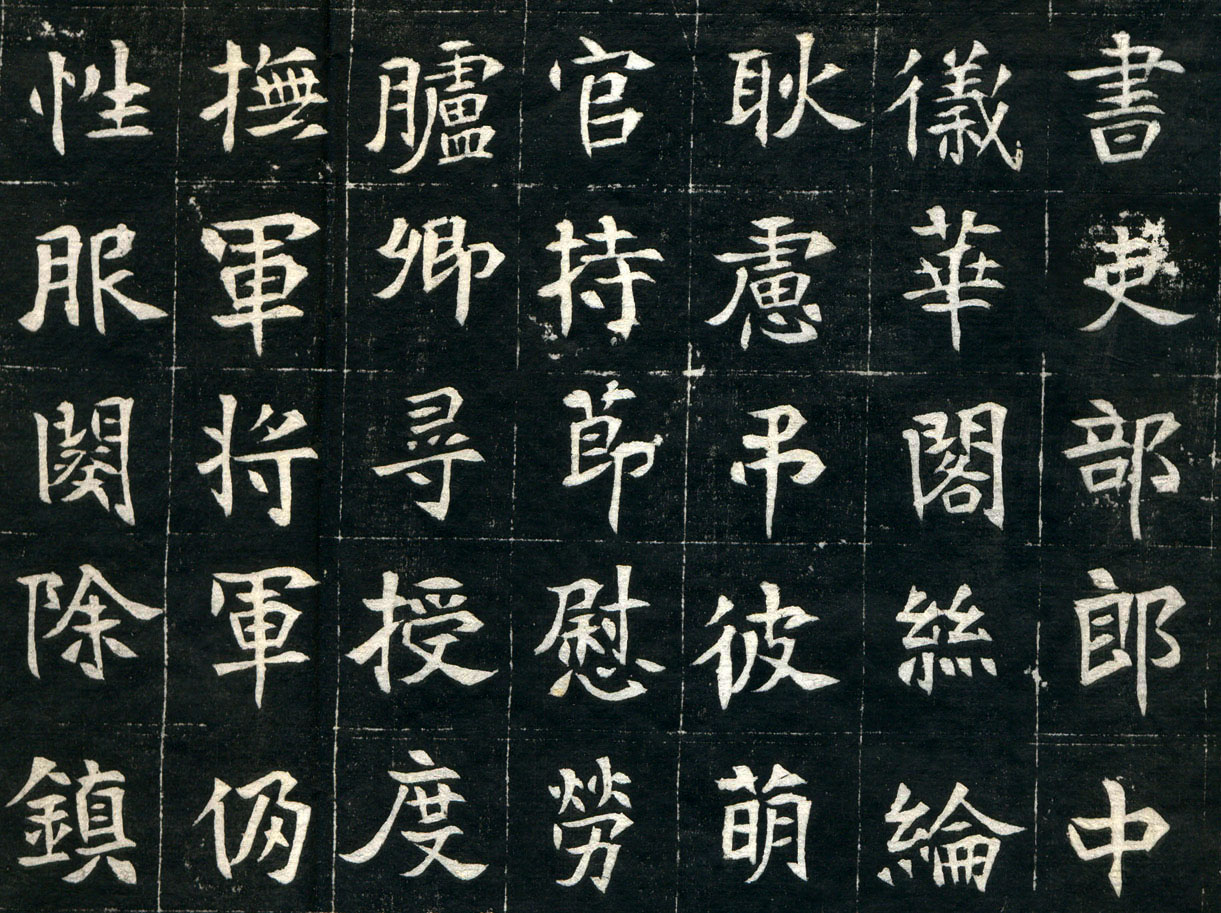 書吏部郎中
儀華閣絲綸
耿慮吊彼萌
官持節慰勞
臚卿尋授度
撫軍將軍仍
性服闋除鎮